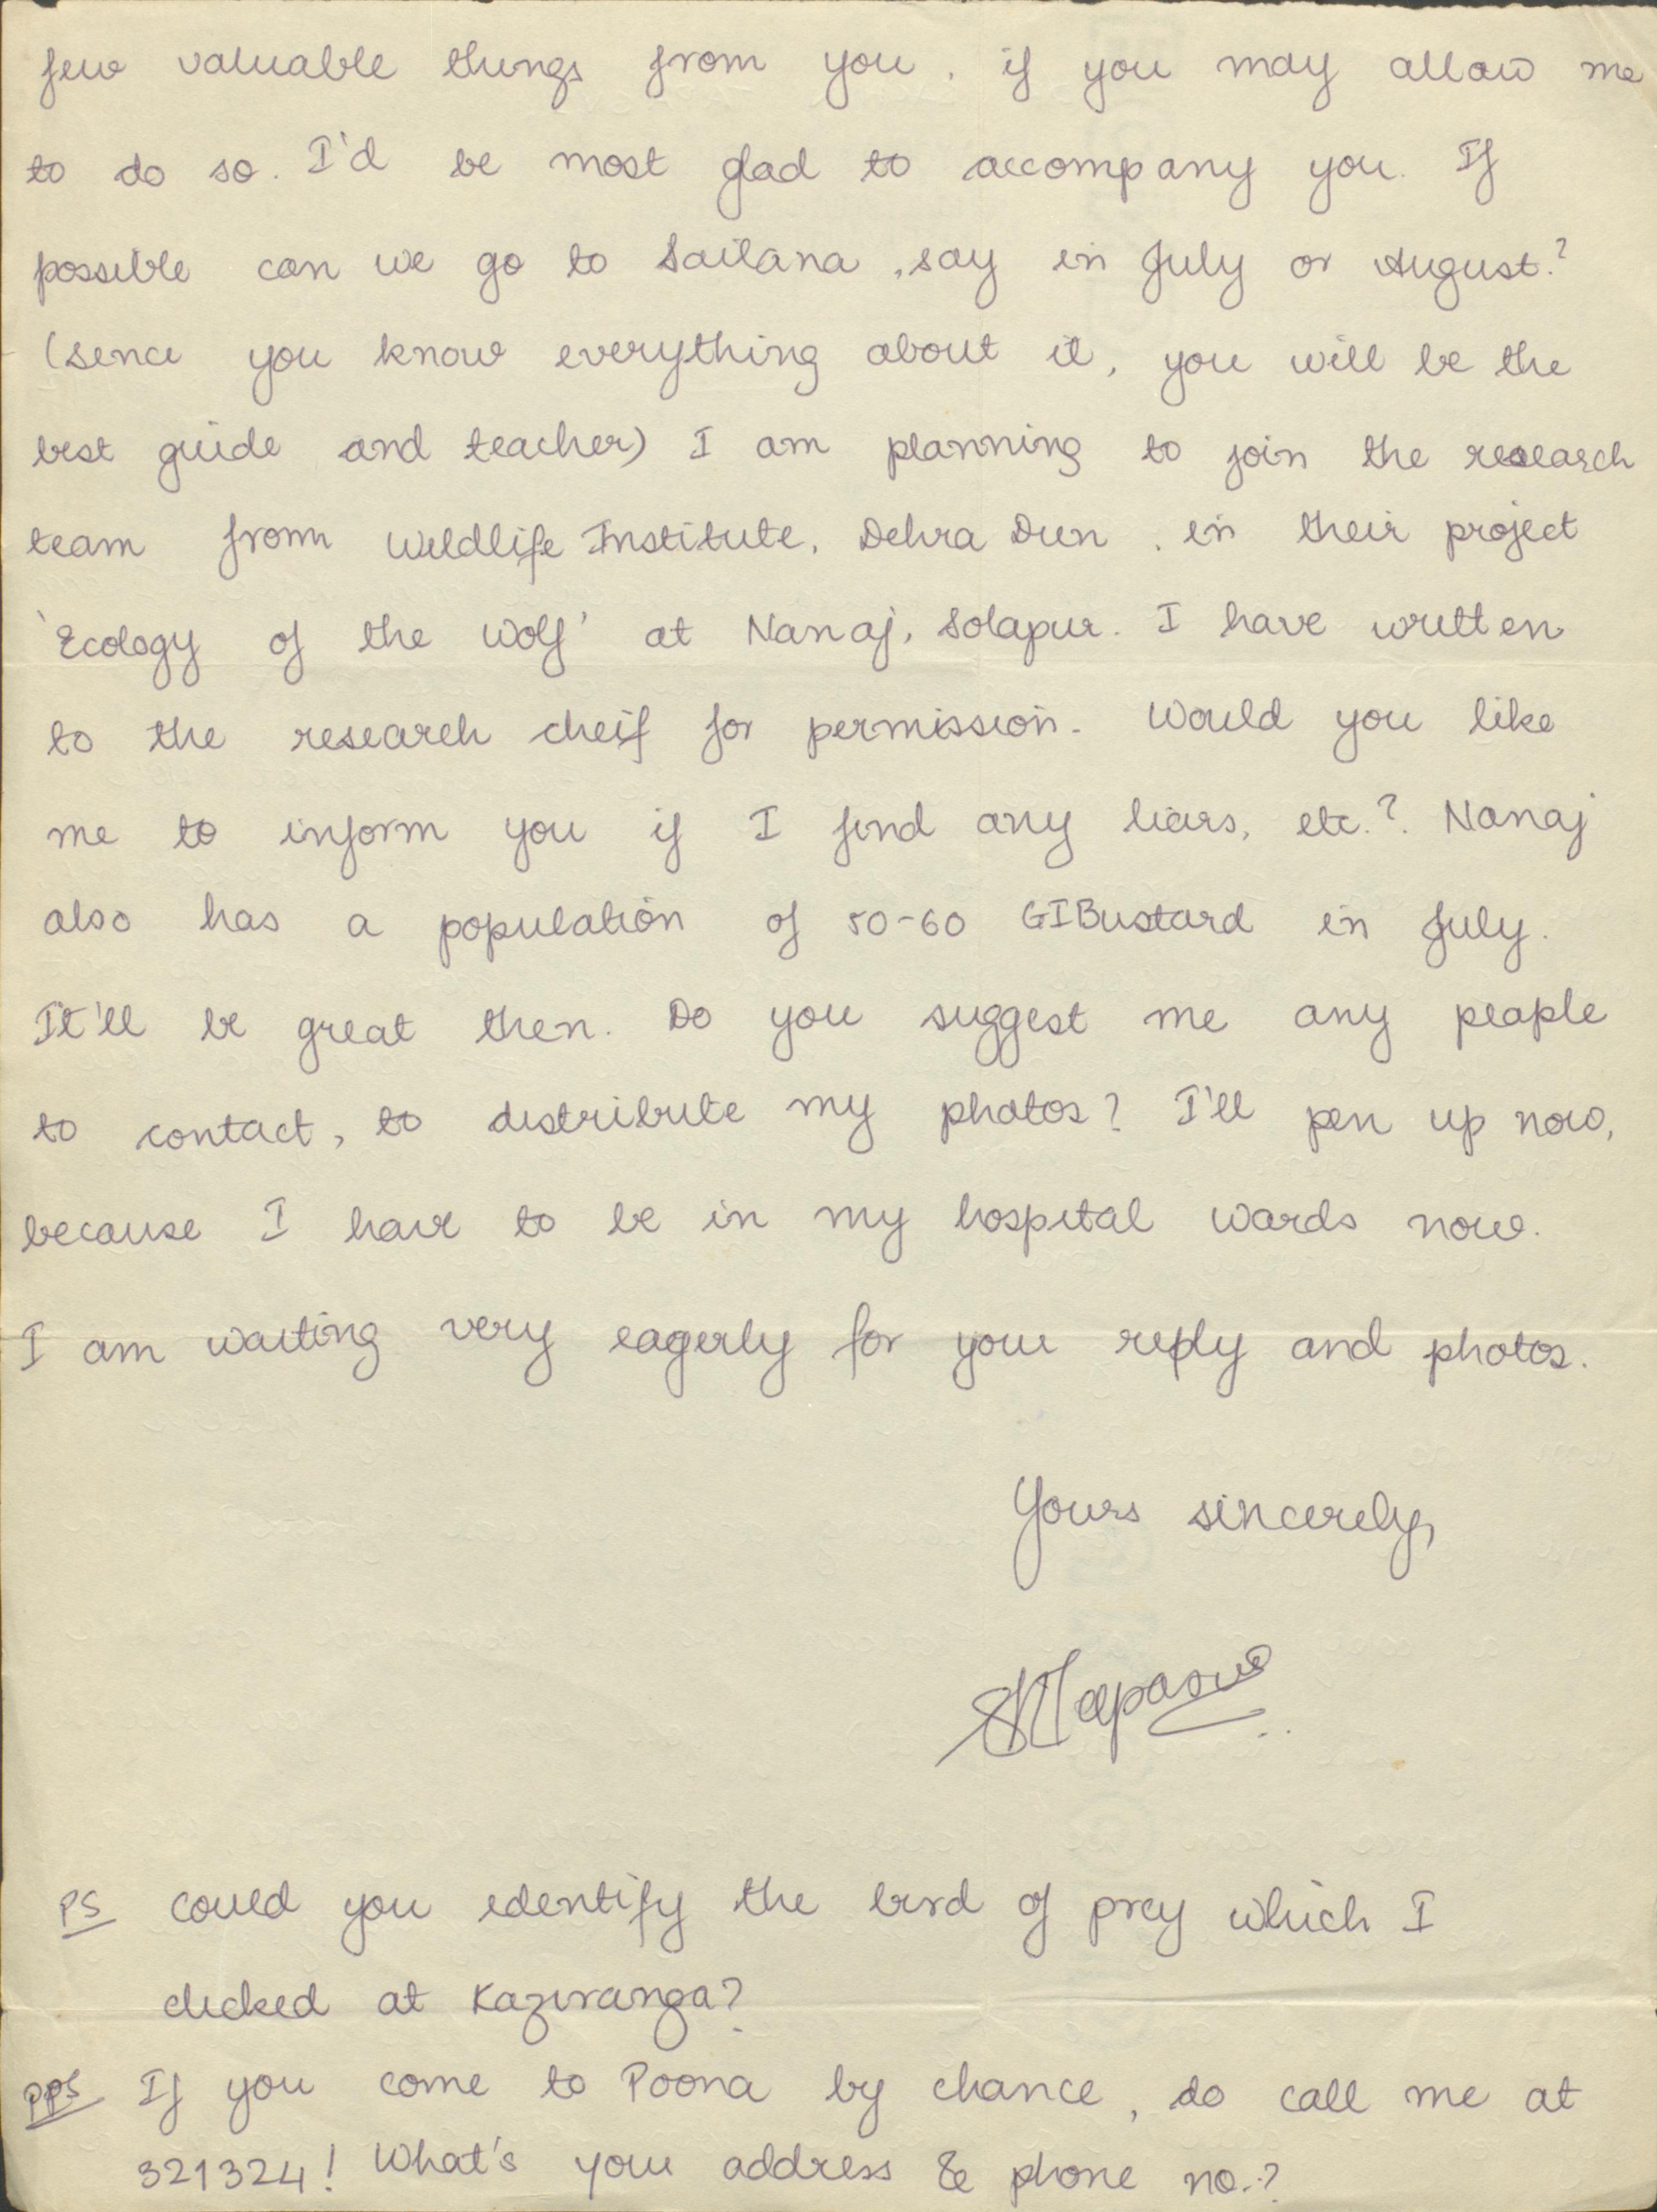 few valuable things from you, if you may allow me
to do so. I'd be most glad to accompany you. If
possible can we go to Sailana, say in July or August?
(sence you know everything about it, you will be the
best guide and teacher) I am planning to join the research
team from Wildlife Institute, Dehra Dun, in their project
'Ecology of the Wolf' at Nanaj, Solapur. I have written
to the research cheif for permission. Would you like
me to inform you if I find any liars, etc.? Nanaj
also has a population of 50-60 GIBustard in July.
It'll be great then. Do you suggest me any people
to contact, to distribute my photos? I'll pen up now,
because I have to be in my hospital wards now.
I am waiting very eagerly for your reply and photos.
Yours sincerely,
PS Could you identify the bird of prey which I
clicked at Kaziranga?
PPS If you come to Poona by chance, do call me at
321324! What's your address & phone no.?